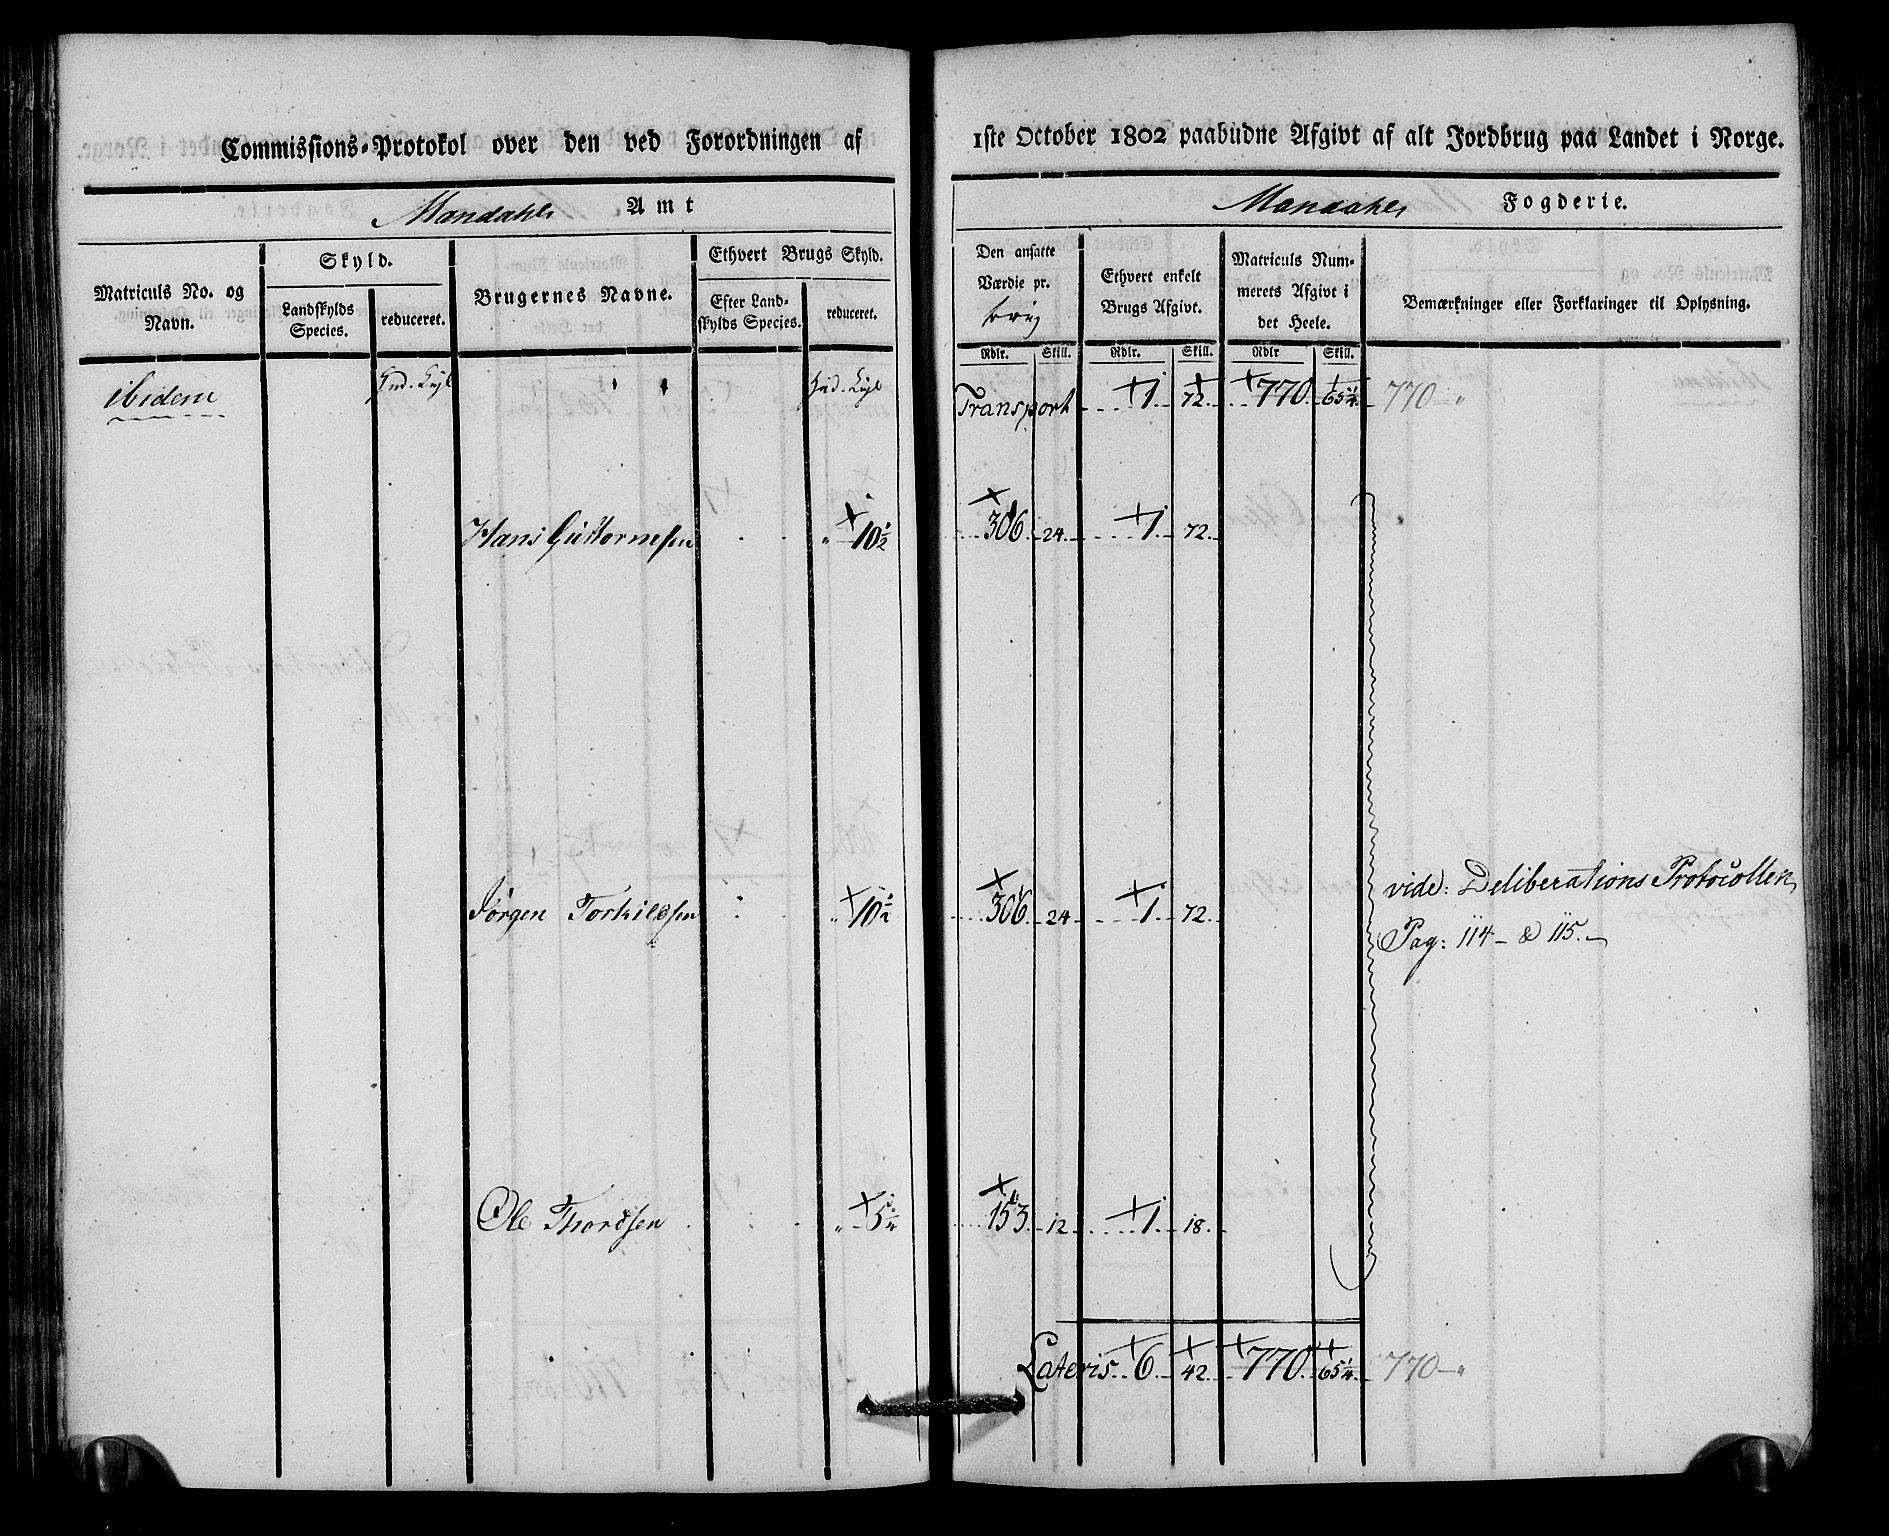 Commissions-Protokol over den ved Forordningen af 1ste October 1802 paabudne Afgivt af alt Jordbrug paa Landet i Norge.
Mandahls Amt
Mandahls Fogderie.
Matriculs No. og Navn.
Skyld.
Landskylds Species.
reduceret.
Brugernes Navne.
Ethvert Brugs Skyld.
Efter Landskylds Species.
reduceret.
Den ansatte Værdie pr.
Ethvert enkelt Brugs Afgivt.
Matriculs Nummerets Afgivt i det Heele.
Bemærkninger eller Forklaringer til Oplysning.
Rdlr. Skill. Rdlr. Skill. Rdlr Skill.
ibidem
Transport 1 72 770 65 1/4 770
Hans Guttormsen 10 1/2 306 24 1 72
Jørgen Torkildsen 10 1/2 306 24 1 72
vide: Deliberations Protocollen
Pag: 114 & 115.
Ole Thordsen 5 1/4 153 12 1 18
Lateris 6 42 770 65 1/4 770